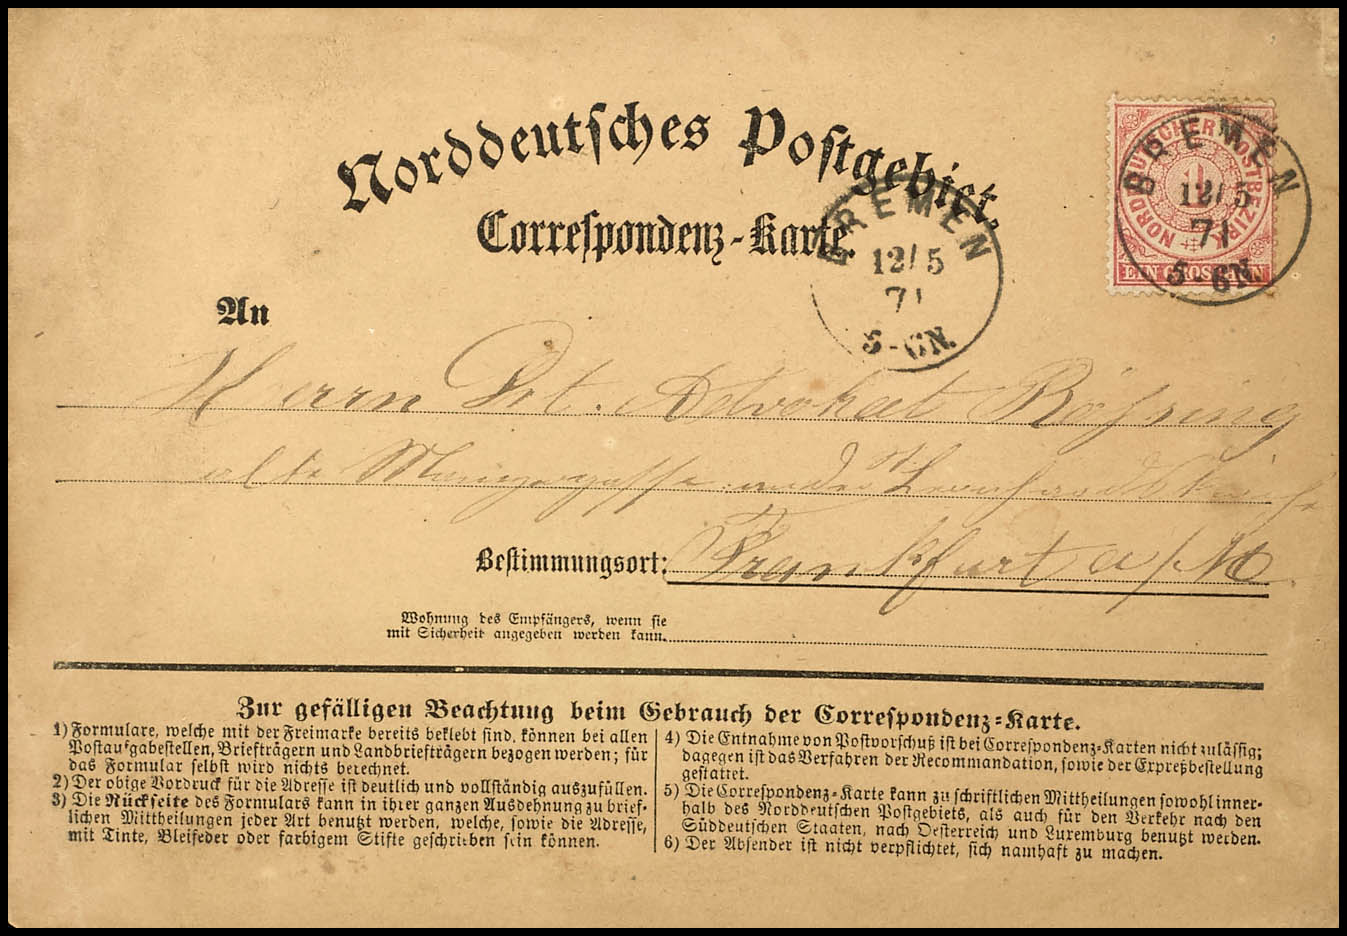 Norddeutsches Postgebiet.
Correspondenz-Karte.
NORDDEUTSCHER POSTBEZIRK
1
EIN GROSCHEN
BREMEN
12/5
71
5-6N.
BREMEN
12/5
71
5-6N.
An
Herrn Dr. Advokat Röhsing
alte Mainzergasse an der Leonhardskirche
Bestimmungsort: Frankfurt a/M
Wohnung des Empfängers, wenn sie
mit Sicherheit angegeben werden kann.
Zur gefälligen Beachtung beim Gebrauch der Correspondenz-Karte.
1) Formulare, welche mit der Freimarke bereits beklebt sind, können bei allen
Postaufgabestellen, Briefträgern und Landbriefträgern bezogen werden; für
das Formular selbst wird nichts berechnet.
2) Der obige Vordruck für die Adresse ist deutlich und vollständig auszufüllen.
3) Die Rückseite des Formulars kann in ihrer ganzen Ausdehnung zu brief-
lichen Mittheilungen jeder Art benutzt werden, welche, sowie die Adresse,
mit Tinte, Bleifeder oder farbigem Stifte geschrieben sein können.
4) Die Entnahme von Postvorschuß ist bei Correspondenz-Karten nicht zulässig;
dagegen ist das Verfahren der Recommandation, sowie der Expreßbestellung
gestattet.
5) Die Correspondenz-Karte kann zu schriftlichen Mittheilungen sowohl inner-
halb des Norddeutschen Postgebiets, als auch für den Verkehr nach den
Süddeutschen Staaten, nach Oesterreich und Luxemburg benutzt werden.
6) Der Absender ist nicht verpflichtet, sich namhaft zu machen.